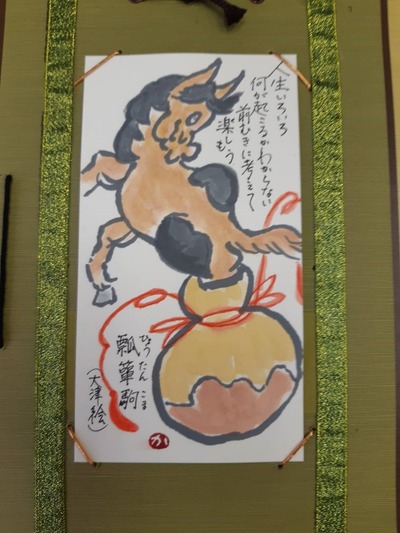 人生いろいろ
何が起こるかわからない
前むきに考えて
楽しもう
瓢箪駒
ひょうたん こま
(大津絵)
か